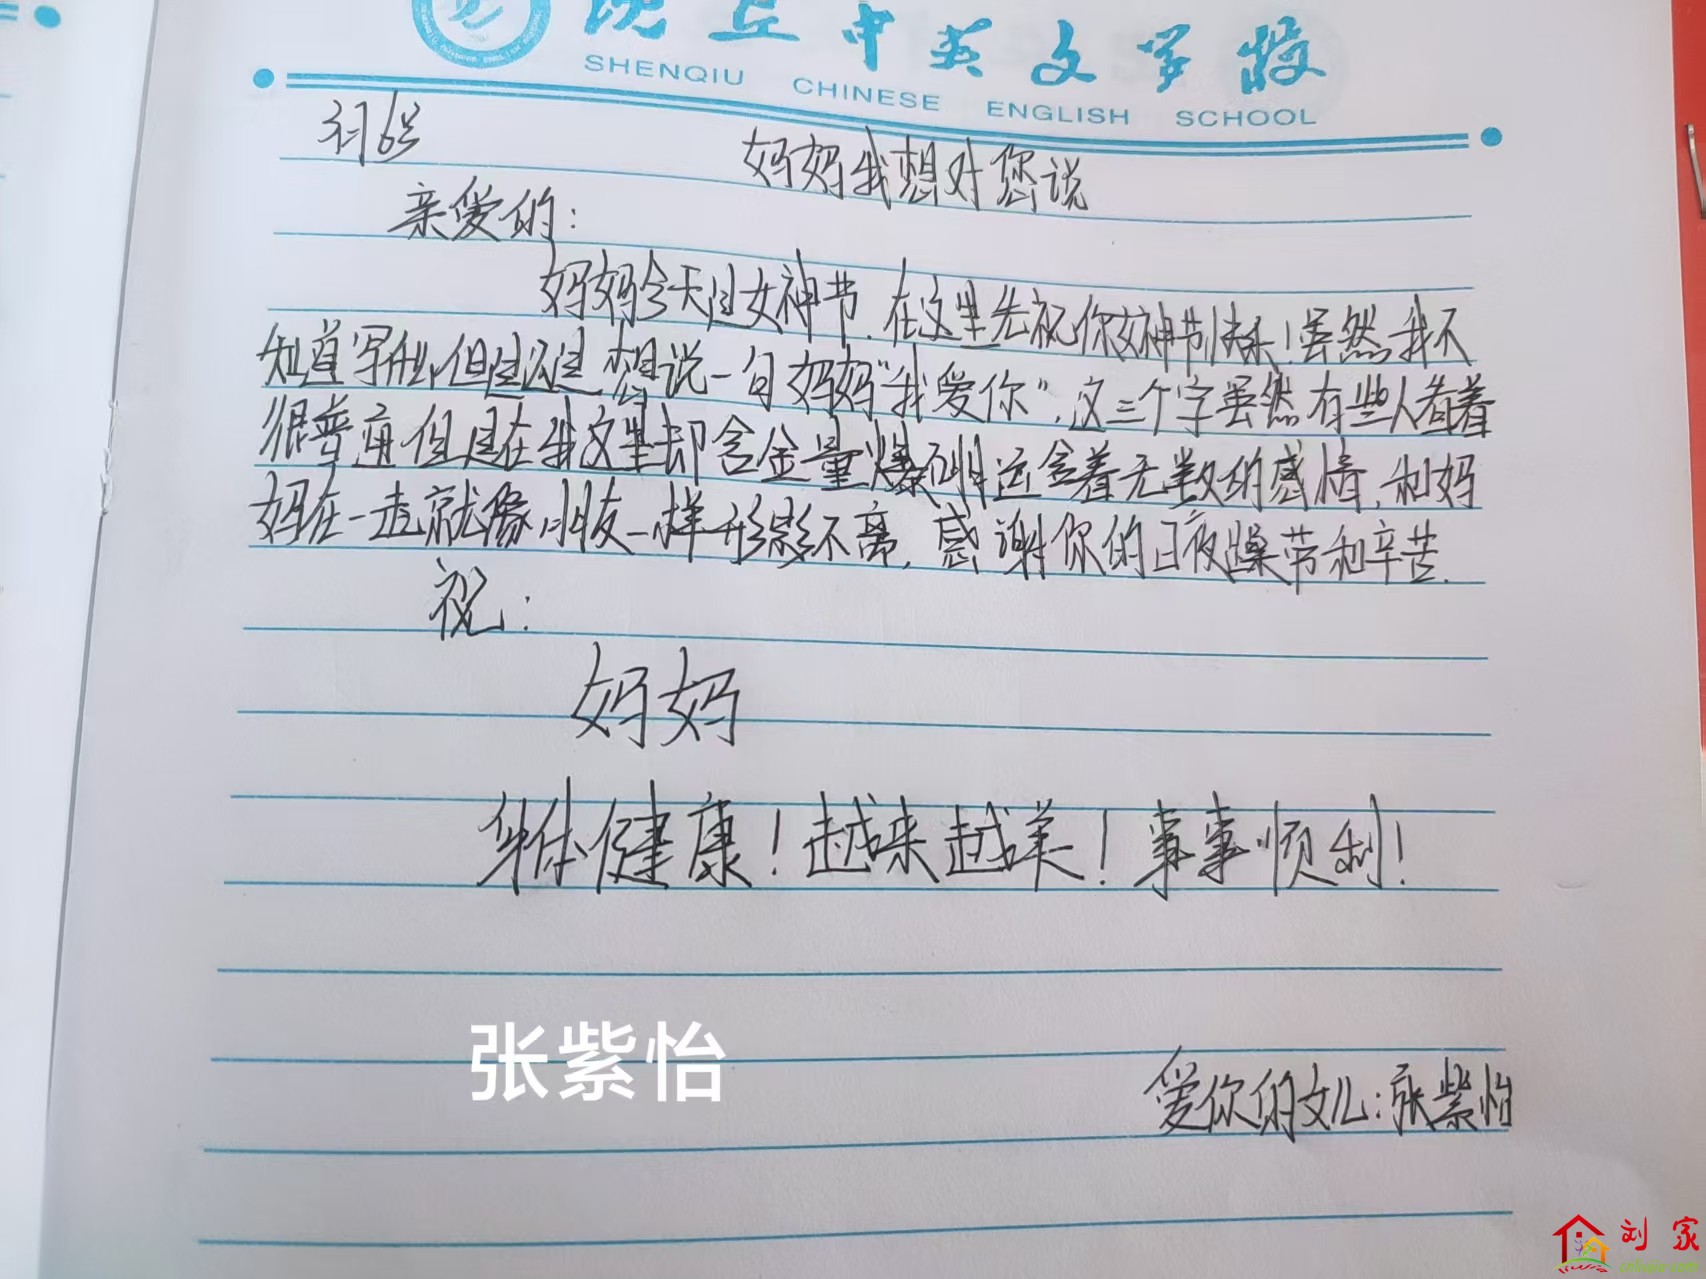 沈丘中英文学校
SHENQIU CHINESE ENGLISH SCHOOL
3月6号
妈妈我想对您说
亲爱的：
妈妈今天过女神节.在这里先祝你女神节快乐！虽然我不
知道写什么,但是还是想说一句妈妈“我爱你”.这三个字虽然有些人看着
很普通但是在我这里却含金量爆含着无数的感情,和妈
妈在一起就像朋友一样形影不离.感谢你的日夜操劳和辛苦.
祝：
妈妈
身体健康！越来越美！事事顺利！
张紫怡
爱你的女儿：张紫怡
刘家